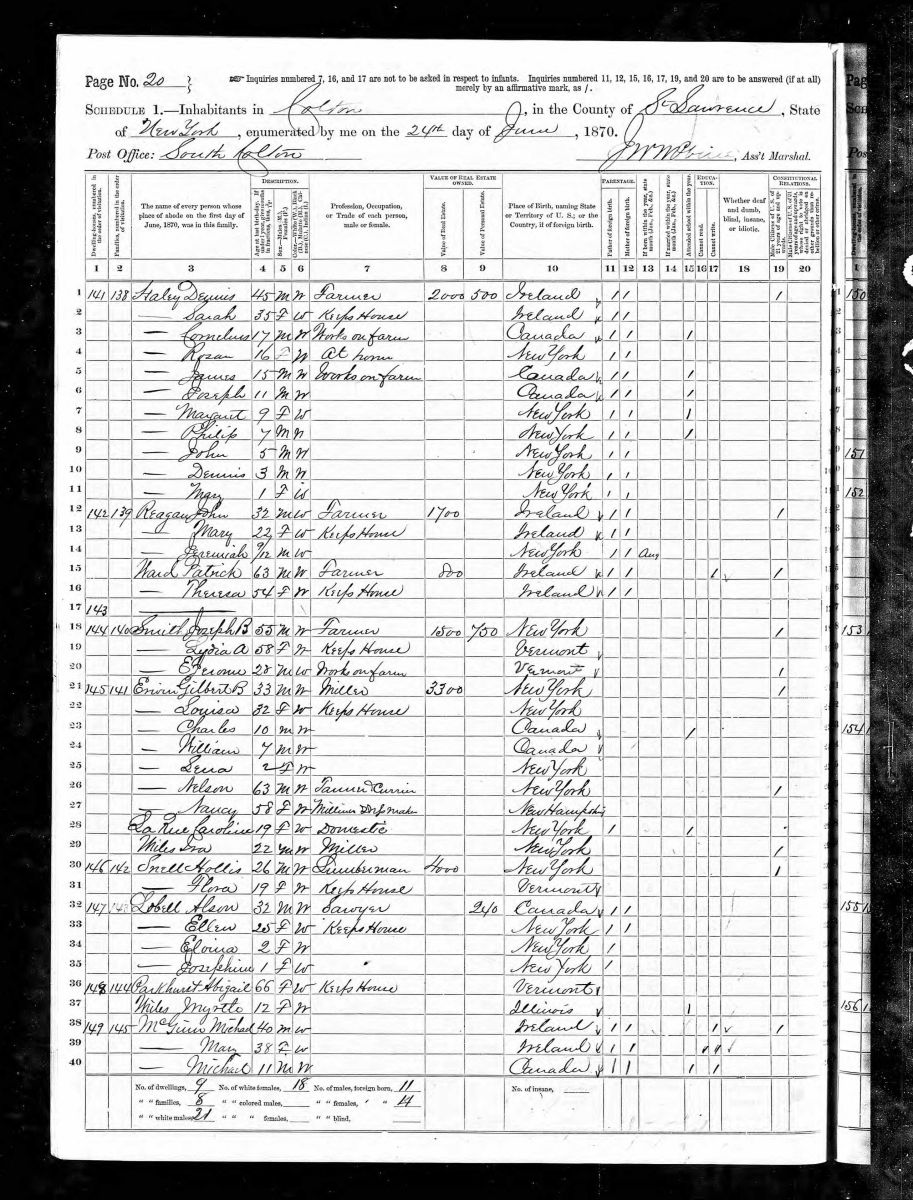 Page No. 20
☞ Inquiries numbered 7, 16, and 17 are not to be asked in respect to infants. Inquiries numbered 11, 12, 15, 16, 17, 19, and 20 are to be answered (if at all)
merely by an affirmative mark, as /.
SCHEDULE 1.—Inhabitants in Colton, in the County of St Lawrence, State
of New York, enumerated by me on the 24th day of June, 1870.
Post Office: South Colton Ass't Marshal.
DESCRIPTION. VALUE OF REAL ESTATE OWNED. PARENTAGE. EDUCATION. CONSTITUTIONAL RELATIONS.
Dwelling-houses, numbered in the order of visitation.
Families, numbered in the order of visitation.
The name of every person whose place of abode on the first day of June, 1870, was in this family.
Age at last birth-day. If under 1 year, give months in fractions, thus, 3/12
Sex.—Males (M.), Females (F.)
Profession, Occupation, or Trade of each person, male or female.
Value of Real Estate.
Value of Personal Estate.
Place of Birth, naming State or Territory of U. S.; or the Country, if of foreign birth.
Father of foreign birth.
Mother of foreign birth.
If born within the year, state month (Jan., Feb., &c.)
If married within the year, state month (Jan., Feb., &c.)
Attended school within the year.
Cannot read.
Cannot write.
Whether deaf and dumb, blind, insane, or idiotic.
Male Citizens of U. S. of 21 years of age and upwards.
1 2 3 4 5 6 7 8 9 10 11 12 13 14 15 16 17 18 19 20
1 141 138 Haley Dennis 45 M W Farmer 2000 500 Ireland / / /
2 — Sarah 35 F W Keeps House Ireland / /
3 — Cornelius 17 M W Works on farm Canada / / /
4 — Rosan 16 F W At home New York / /
5 — James 15 M W Works on farm Canada / / /
6 — Joseph 11 M W Canada / / /
7 — Margaret 9 F W New York / / /
8 — Philip 7 M W New York / / /
9 — John 5 M W New York / /
10 — Dennis 3 M W New York / /
11 — Mary 1 F W New York / /
12 142 139 Reagan John 32 M W Farmer 1700 Ireland / / /
13 — Mary 22 F W Keeps House Ireland / /
14 — Jeremiah 9/12 M W New York / / Aug
15 Ward Patrick 63 M W Farmer 800 Ireland / / / /
16 — Theresa 54 F W Keeps House Ireland / /
17 143 —
18 144 140 Smith Joseph B 55 M W Farmer 1500 750 New York /
19 — Lydia A 58 F W Keeps House Vermont
20 — E Jerome 28 M W Works on farm Vermont /
21 145 141 Erwin Gilbert B 33 M W Miller 3300 New York /
22 — Louisa 32 F W Keeps House New York
23 — Charles 10 M W Canada /
24 — William 7 M W Canada
25 — Lena 2 F W New York
26 — Nelson 63 M W Tanner & Currier New York /
27 — Nancy 58 F W Milliner & Dress Maker New Hampshire
28 La Rue Caroline 19 F W Domestic New York / /
29 Wiles Ira 22 M W Miller New York /
30 146 142 Snell Hollis 26 M W Lumberman 4000 New York /
31 — Flora 19 F W Keeps House Vermont
32 147 143 Lobell Alson 32 M W Sawyer 240 Canada / /
33 — Ellen 25 F W Keeps House New York / /
34 — Eloina 2 F W New York /
35 — Josephine 1 F W New York /
36 148 144 Parkhurst Abigail 66 F W Keeps House Vermont
37 Wiles Myrtle 12 F W Illinois /
38 149 145 McGinn Michael 40 M W Ireland / / / /
39 — Mary 38 F W Ireland / / / /
40 — Michael 11 M W Canada / / / /
No. of dwellings, 9 No. of white females, 18 No. of males, foreign born, 11 No. of insane,
" " families, 8 " " colored males, " " females, " " 4
" " white males, 21 " " " females, " " blind,
Page
150
151
152
153
154
155
156